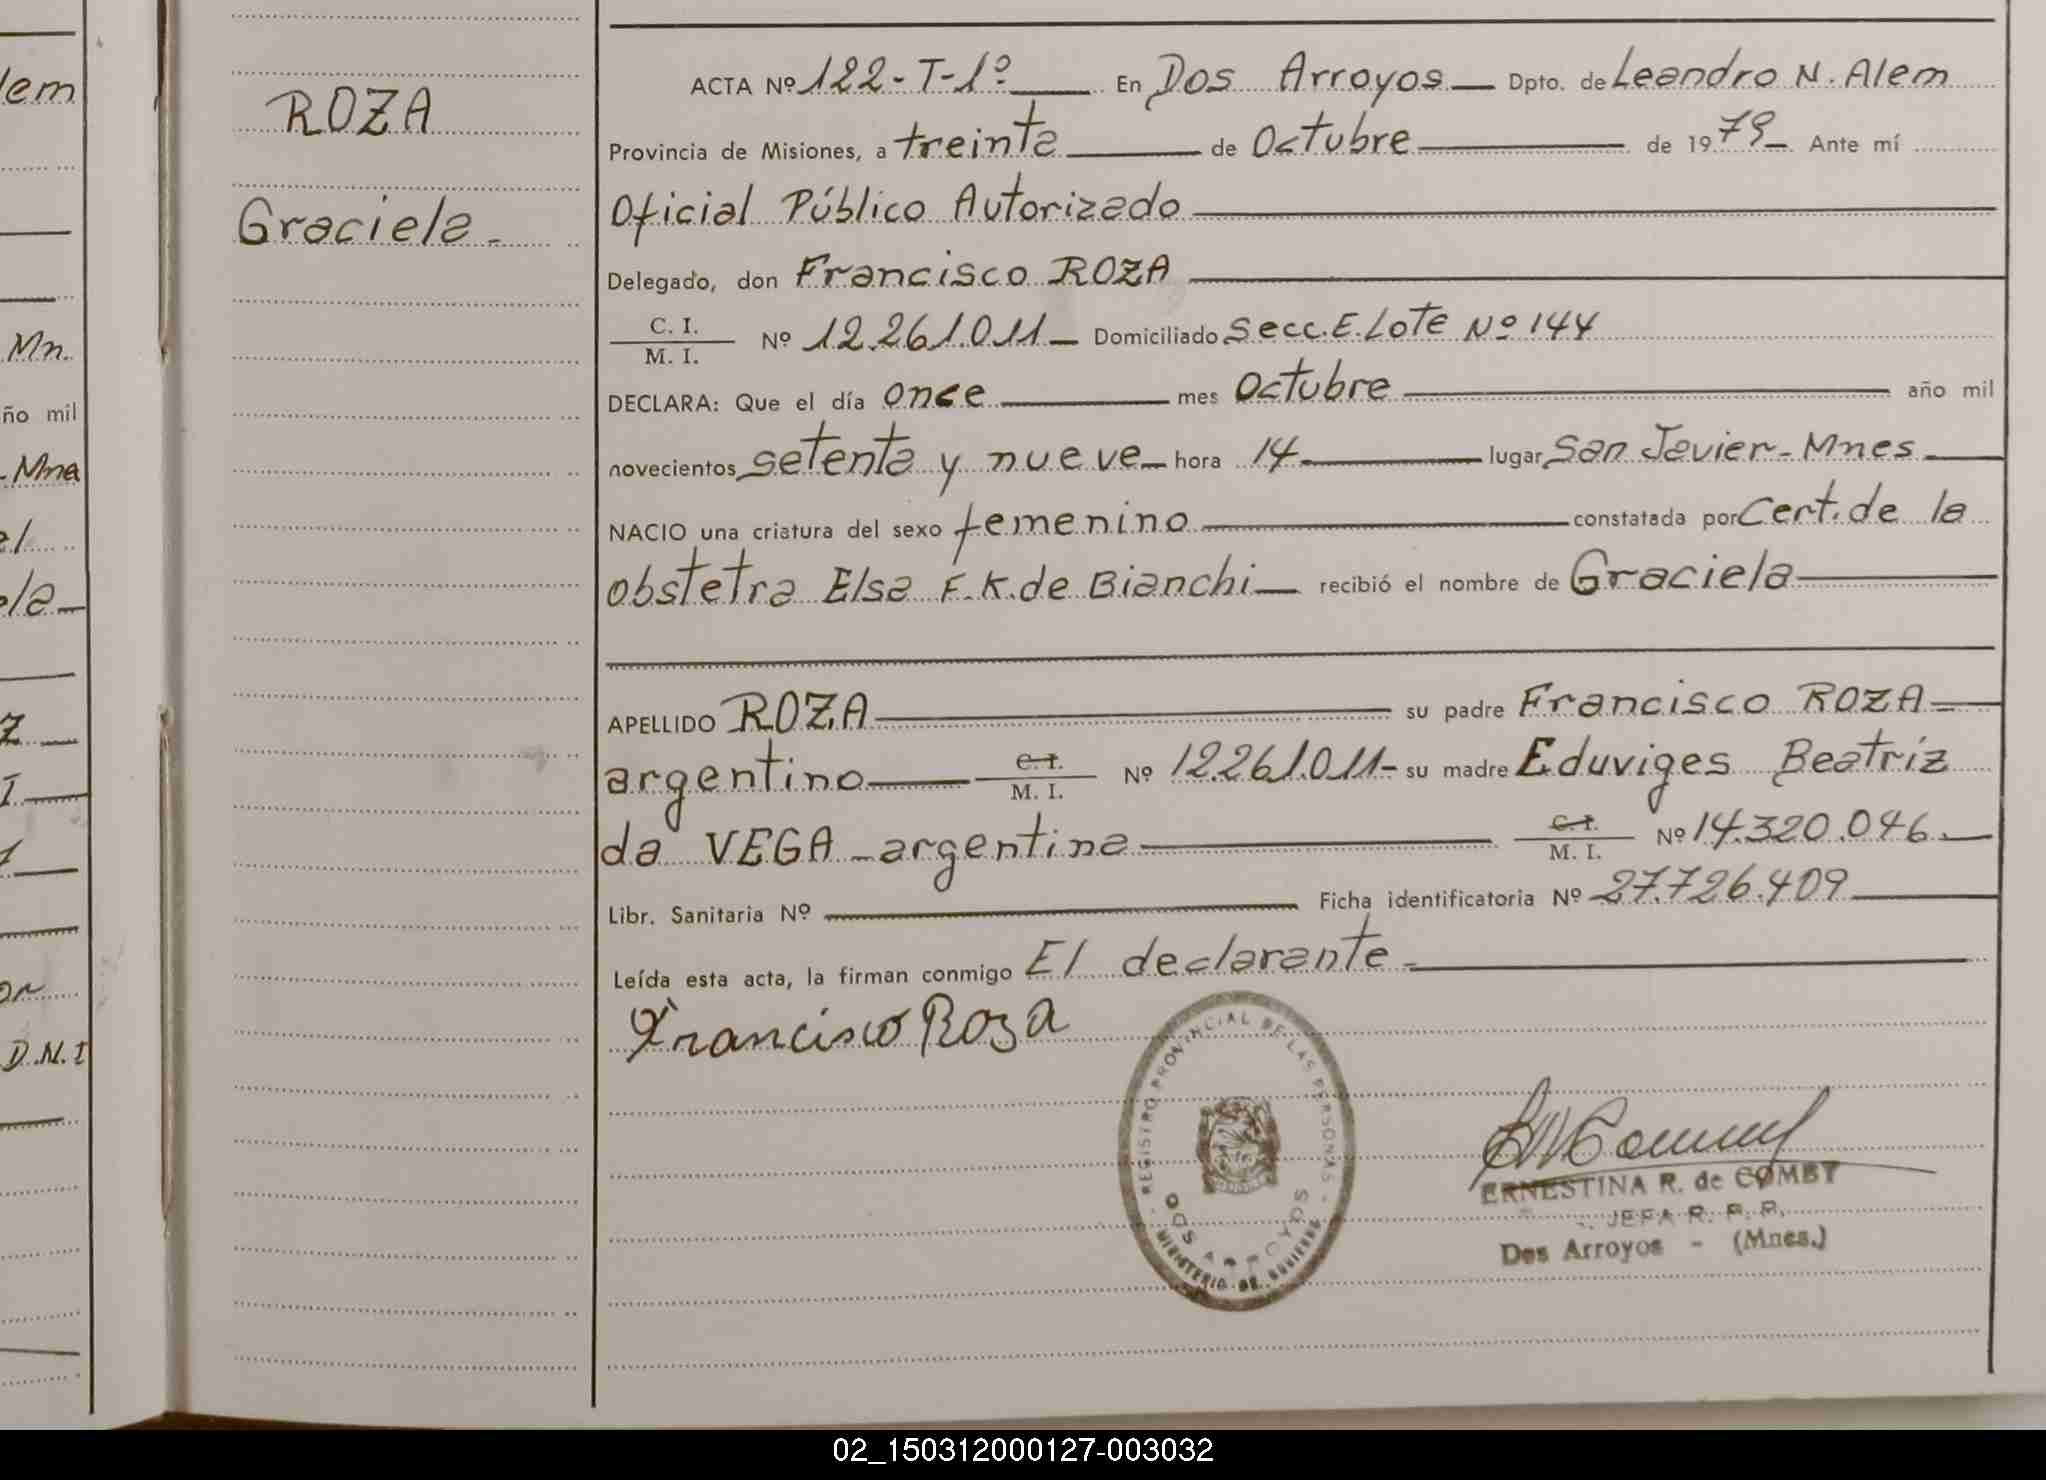 lem
Mn.
ño mil
-Mna
el
ela
Z
I
or
D.N.I
ROZA
Graciela-
ACTA Nº 122-T-1º En Dos Arroyos Dpto. de Leandro N. Alem
Provincia de Misiones, a treinta de Octubre de 1979 Ante mí
Oficial Público Autorizado
Delegado, don Francisco ROZA
C. I.
M. I. Nº 12.261.011 Domiciliado Secc.E.Lote Nº 144
DECLARA: Que el día once mes Octubre año mil
novecientos setenta y nueve hora 14 lugar San Javier-Mnes
NACIO una criatura del sexo femenino constatada por Cert.de la
obstetra Elsa F.K.de Bianchi recibió el nombre de Graciela
APELLIDO ROZA su padre Francisco ROZA
argentino C.I. M. I. Nº 12.261.011- su madre Eduviges Beatriz
da VEGA -argentina C.I. M. I. Nº 14.320.046.
Libr. Sanitaria Nº Ficha identificatoria Nº 27.726.409
Leída esta acta, la firman conmigo El declarante-
Francisco Roza
REGISTRO PROVINCIAL DE LAS PERSONAS
DOS ARROYOS
MINISTERIO DE GOBIERNO
ERNESTINA R. de COMBY
JEFA R. P. P.
Dos Arroyos - (Mnes.)
02_150312000127-003032